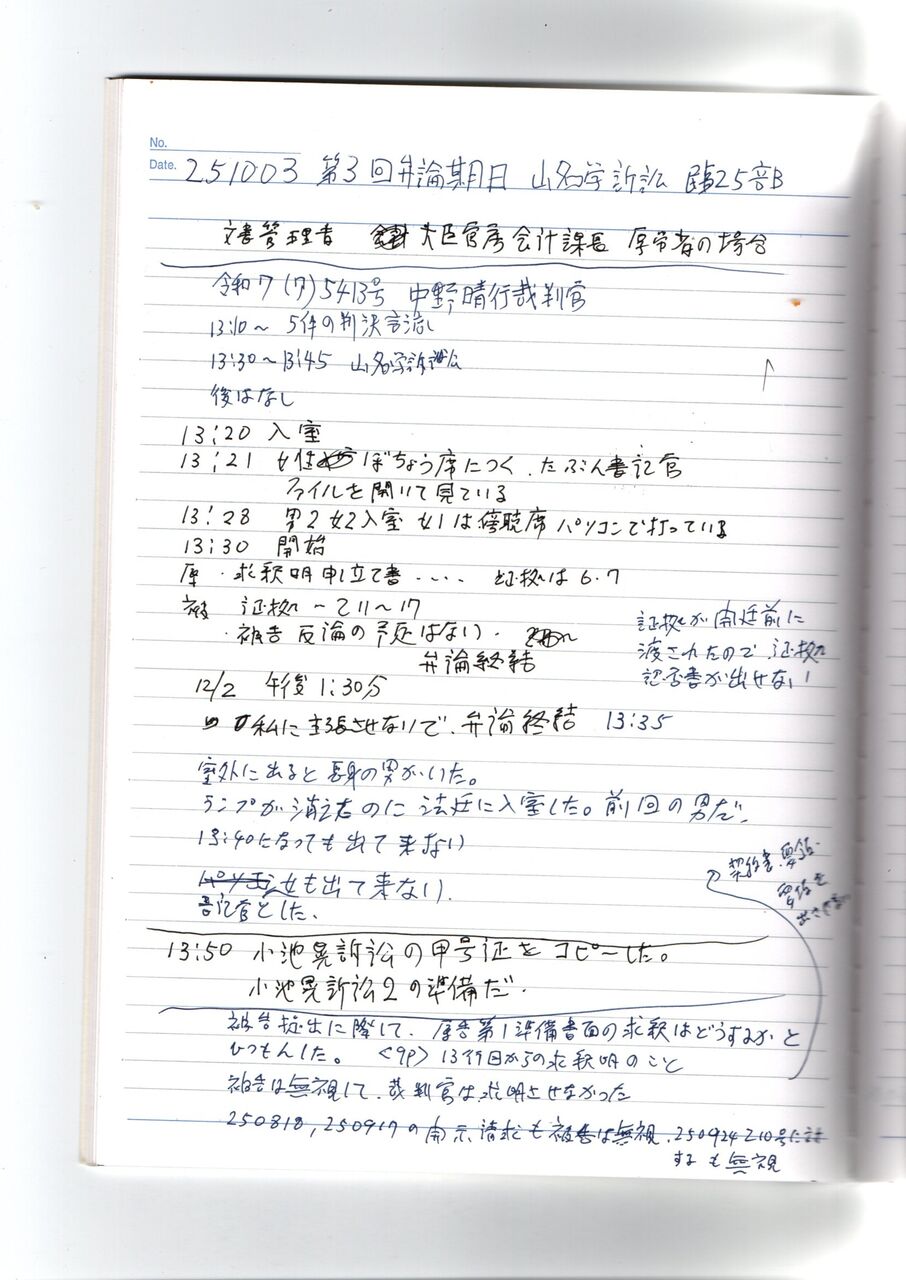 No.
Date. 251003 第3回弁論期日 山名学訴訟 民事25部B
文書管理者 大臣官房会計課長 厚労省の場合
令和7(ワ)5413号 中野晴行裁判官
13:10～ 5件の判決言渡し
13:30～13:45 山名学訴訟
後はなし
13:20 入室
13:21 女性 ぼちょう席につく、たぶん書記官
ファイルを開いて見ている
13:28 男2 女2入室 女1は傍聴席 パソコンで打っている
13:30 開始
原 ・求釈明申し立て書‥‥ 証拠は6.7
被 証拠－乙11～17
・被告 反論の予定はない。
弁論終結
証拠が開廷前に
渡されたので 証拠
認否書が出せない
12/2 午後1:30分
私に主張させないで、弁論終結 13:35
室外に出ると長身の男がいた。
ランプが消えたのに法廷に入室した。前回の男だ。
13:40になっても出て来ない
女も出て来ない。
書記官とした、
契約書・要領・
要領を
13:50 小池晃訴訟の甲号証をコピーした。
小池晃訴訟2の準備だ。
被告提出に際して、原告第1準備書面の求釈はどうするかと
ひつもんした。 <9p> 13行目からの求釈明のこと
被告は無視して、裁判官は求明させなかった
250818,250917の開示請求も被告は無視、250924乙10号に対
するも無視